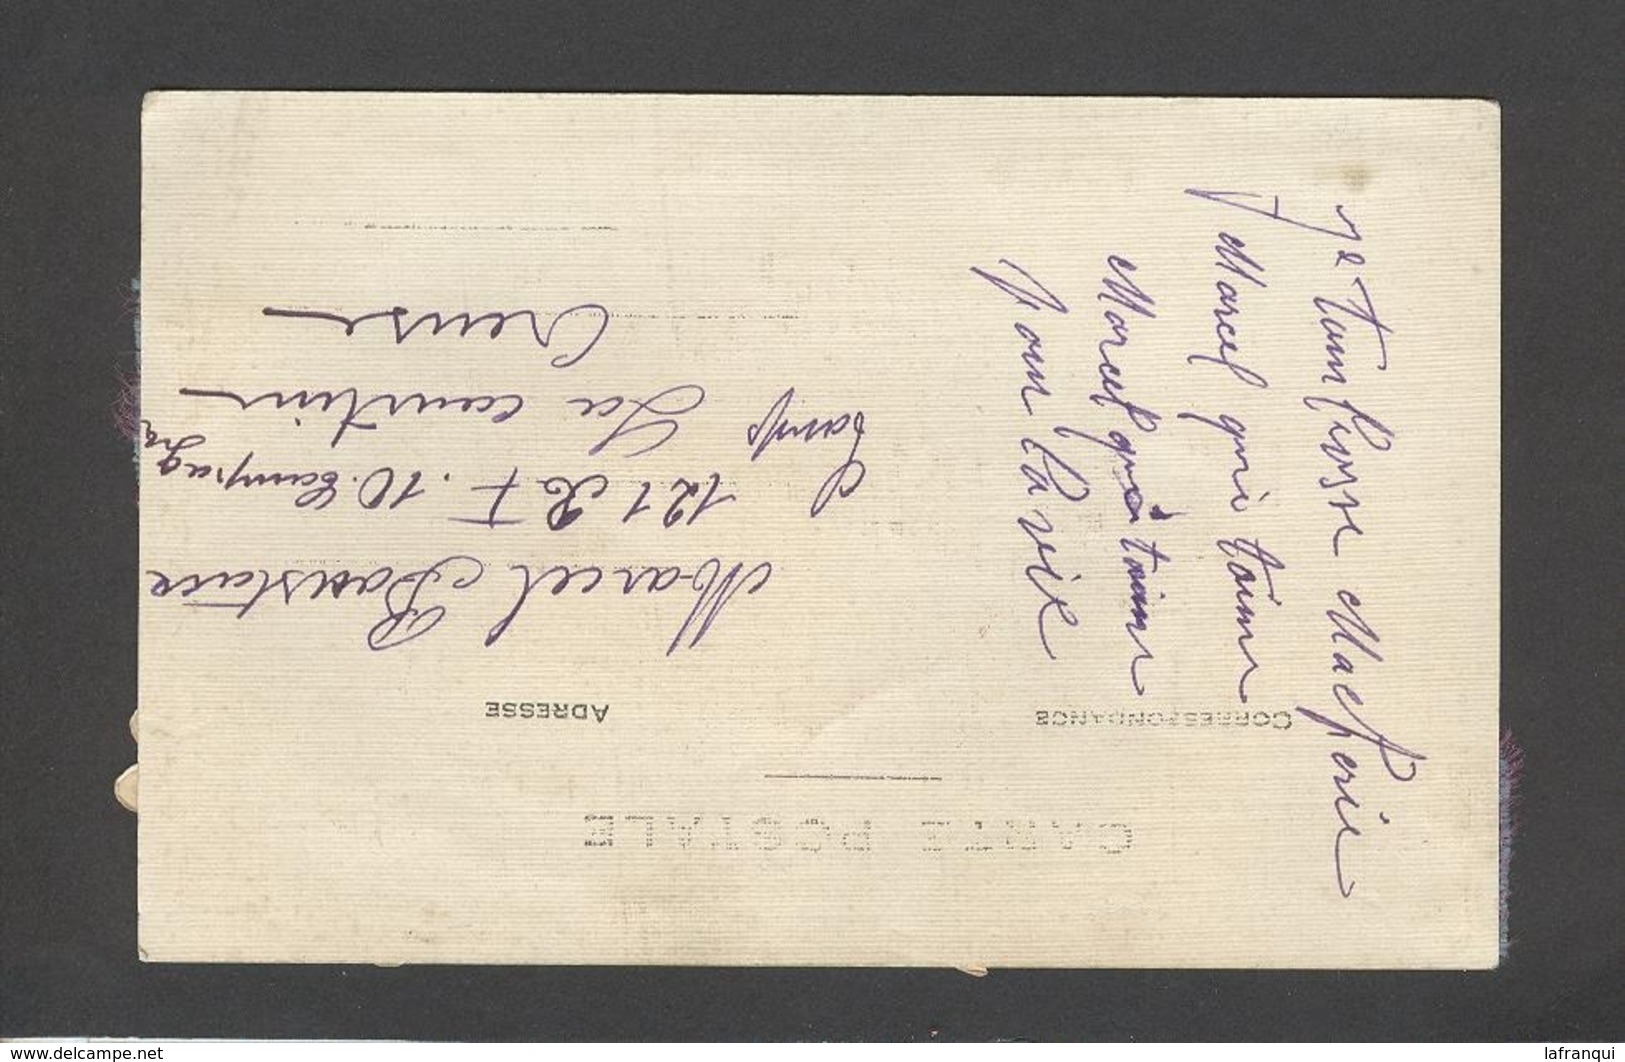 CARTE POSTALE
CORRESPONDANCE
ADRESSE
Je tembrsse Machérie
Marcel qui taime
Marcel qui taime
Pour la vie
Marcel
121 R I. 10. Campag
Camp La courtine
Creuse
www.delcampe.net
lafranqui